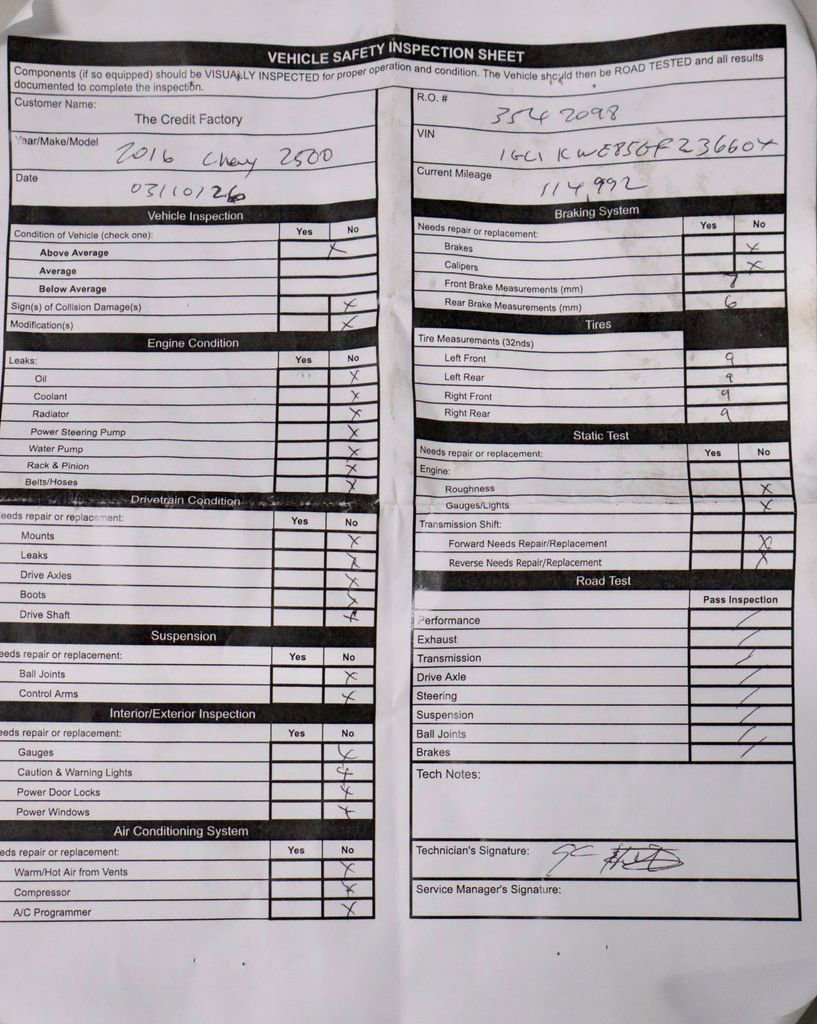 VEHICLE SAFETY INSPECTION SHEET
Components (if so equipped) should be VISUALLY INSPECTED for proper operation and condition. The Vehicle should then be ROAD TESTED and all results
documented to complete the inspection.
Customer Name:
The Credit Factory
Year/Make/Model
2016 Chevy 2500
Date
03/10/26
Vehicle Inspection
Condition of Vehicle (check one): Yes No
Above Average X
Average
Below Average
Sign(s) of Collision Damage(s) X
Modification(s) X
Engine Condition
Leaks: Yes No
Oil X
Coolant X
Radiator X
Power Steering Pump X
Water Pump X
Rack & Pinion X
Belts/Hoses X
Drivetrain Condition
eeds repair or replacement: Yes No
Mounts X
Leaks X
Drive Axles X
Boots X
Drive Shaft X
Suspension
eeds repair or replacement: Yes No
Ball Joints X
Control Arms X
Interior/Exterior Inspection
eeds repair or replacement: Yes No
Gauges X
Caution & Warning Lights X
Power Door Locks X
Power Windows X
Air Conditioning System
eds repair or replacement: Yes No
Warm/Hot Air from Vents X
Compressor X
A/C Programmer X
R.O. #
354 2098
VIN
Current Mileage
114,992
Braking System
Needs repair or replacement: Yes No
Brakes X
Calipers X
Front Brake Measurements (mm) 7
Rear Brake Measurements (mm) 6
Tires
Tire Measurements (32nds)
Left Front 9
Left Rear 9
Right Front 9
Right Rear 9
Static Test
Needs repair or replacement: Yes No
Engine:
Roughness X
Gauges/Lights X
Transmission Shift:
Forward Needs Repair/Replacement X
Reverse Needs Repair/Replacement X
Road Test
Pass Inspection
Performance
Exhaust
Transmission
Drive Axle
Steering
Suspension
Ball Joints
Brakes
Tech Notes:
Technician's Signature:
Service Manager's Signature: